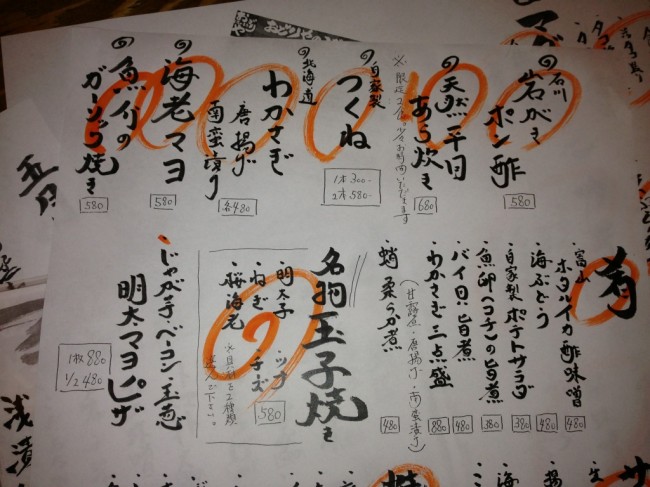 石川
岩がき
ポン酢
580
天然平目
あら炊き
680
自家製
つくね
1本300-
2本580-
北海道
わかさぎ
唐揚げ
南蛮漬け
各480
海老マヨ
580
魚介の
ガーリック焼き
580
肴
富山
ホタルイカ酢味噌
480
・海ぶどう
480
・自家製ポテトサラダ
380
・魚卵(コチ)の旨煮
380
・バイ貝旨煮
480
・わかさぎ三点盛
(甘露煮・唐揚げ・南蛮漬け)
880
・蛸柔らか煮
480
名物玉子焼き
・明太子
・ツナ
・ねぎ
・チーズ
・桜海老
※具材を2種類
選んで下さい。
580
・じゃが芋・ベーコン・玉葱
明太マヨピザ
1枚880
1/2 480
浅漬